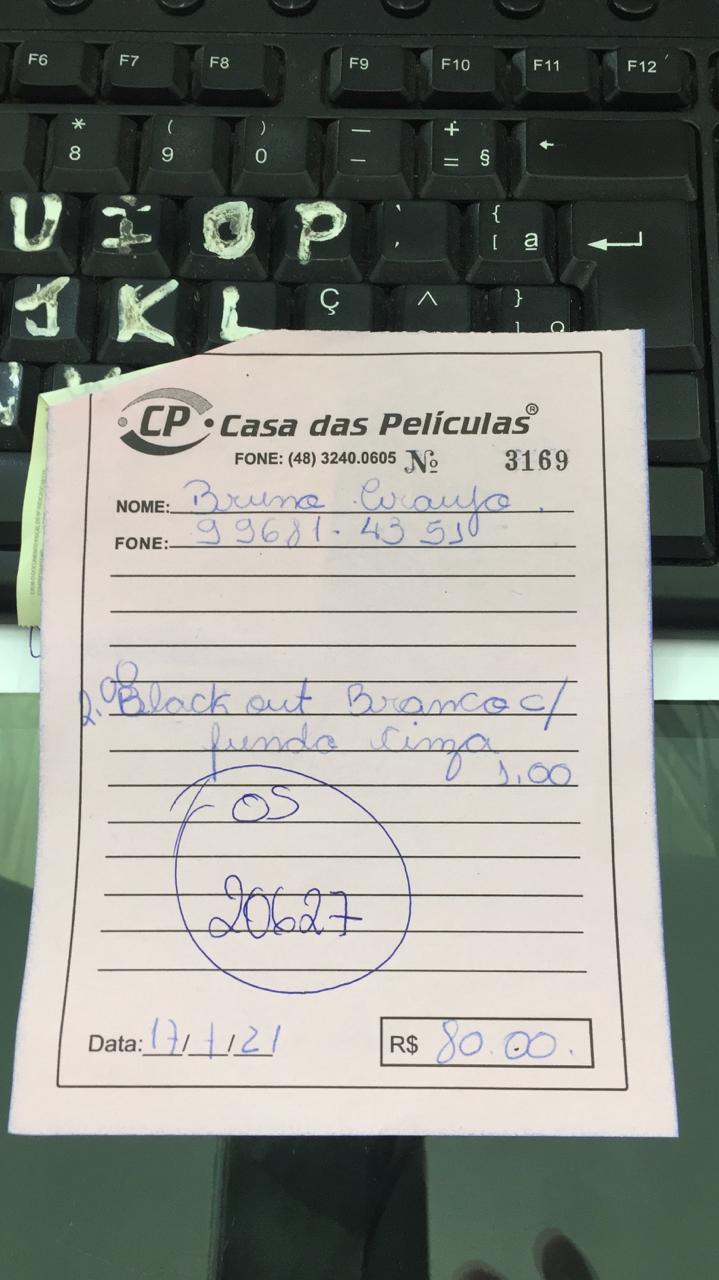 F6 F7 F8 F9 F10 F11 F12
* ( ) — +
8 9 0 – = § ←
U I O P ` { 
, [ ª
J K L Ç ^ }
CP Casa das Películas®
FONE: (48) 3240.0605 Nº 3169
NOME: Bruno Araujo.
FONE: 99681-4351
2.00 Black out Branco c/
fundo Cinza
1.00
OS
20627
Data: 17/7/21 R$ 80.00.